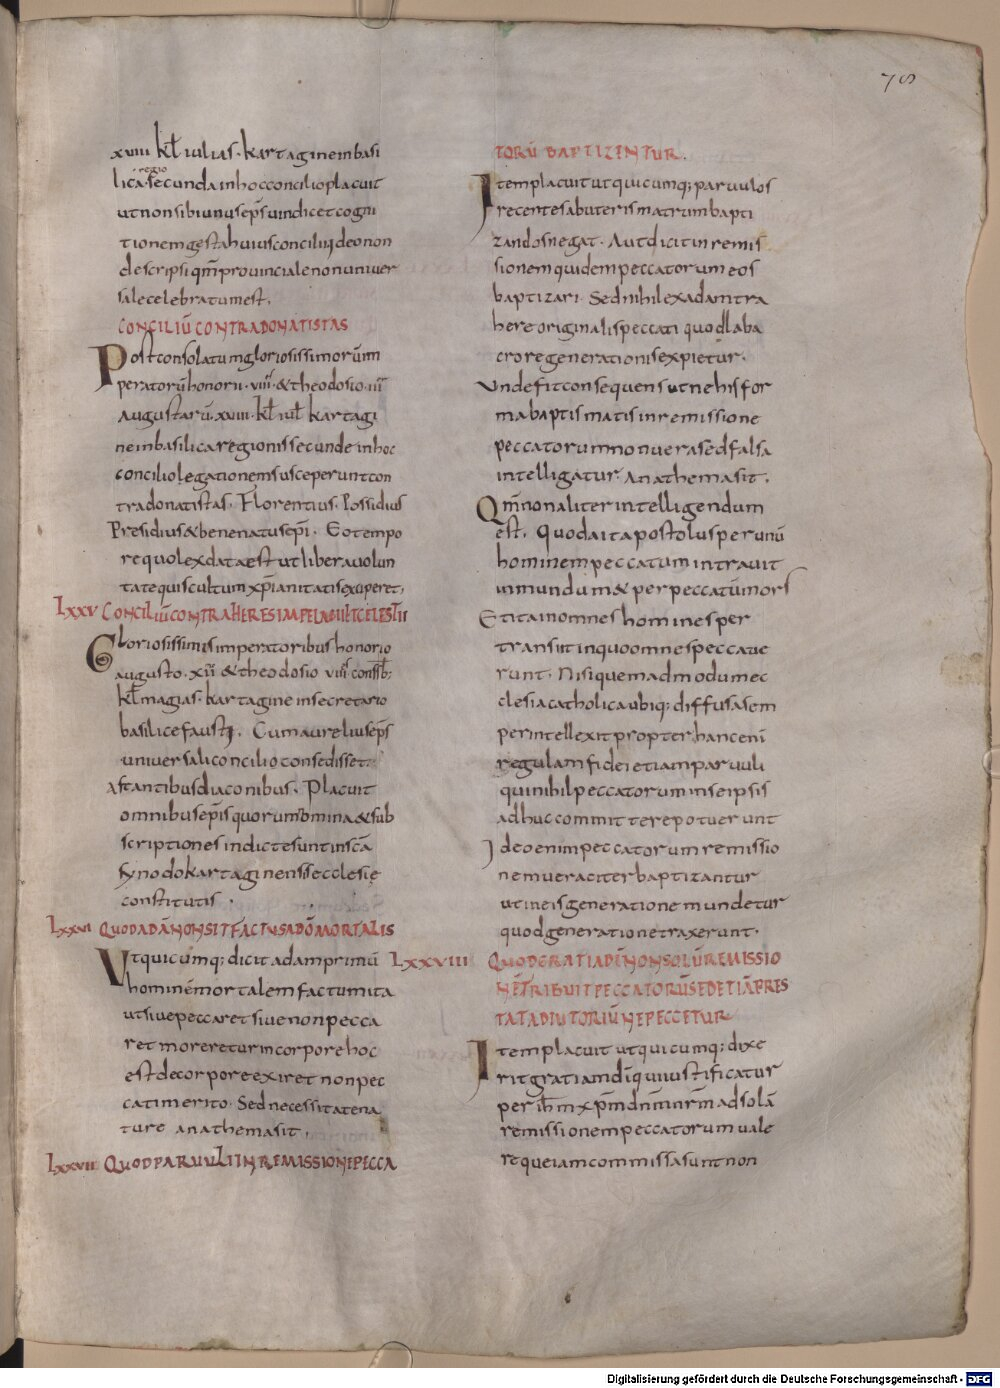 78
xviii kł iulias · kartagine in basi
regio
lica secunda in hoc concilio placuit
ut non sibi unus ep̄s uindicet cogni
tionem gesta huius concilii ideo non
descripsi qm̄ prouinciale non uniuer
sale celebratum est.
CONCILIŪ CONTRA DONATISTAS
Post consolatum gloriosissimorum im
peratorū honorii · viii · & theodosio · iii
augustarū · xviii · kł iuł kartagi
ne in basilica regionis secunde in hoc
concilio legationem susceperunt con
tra donatistas. Florentius. Possidius
Presidius & benenatus ep̄i. Eo tempo
re quo lex data est ut libera uolun
tate quis cultum xp̄ianitatis exciperet.
LXXV CONCILIŪ CONTRA HERESIM PELAGII ET CELESTII
Gloriosissimis imperatoribus honorio
augusto · xii · & theodosio viii conssb;
kł magias · kartagine in secretario
basilice fausti. Cum aurelius ep̄s
uniuersali concilio consedisset
astantibus diaconibus. Placuit
omnibus ep̄is quorum nomina & sub
scriptiones indicte sunt in scā
synodo kartaginensis ecclesię
constitutis.
LXXVI QUOD ADĀ NON SIT FACTUS A DŌ MORTALIS
Ut quicumq; dicit adam primū
hominem mortalem factum ita
ut siue peccaret siue non pecca
ret moreretur in corpore hoc
est de corpore exiret non pec
cati merito. Sed necessitate na
ture anathema sit.
LXXVII QUOD PARUULI IN REMISSIONE PECCA
TORŪ BAPTIZENTUR.
Item placuit ut quicumq; paruulos
recentes ab uteris matrum bapti
zandos negat. Aut dicit in remis
sionem quidem peccatorum eos
baptizari. Sed nihil ex adam tra
here originalis peccati quod laba
cro regenerationis expietur.
Unde fit consequens ut ne his for
ma baptismatis in remissione
peccatorum non uera sed falsa
intelligatur. Anathema sit.
Qm̄ non aliter intelligendum
est. Quod ait apostolus per unū
hominem peccatum intrauit
in mundum & per peccatū mors
Et ita in omnes homines per
transiit in quo omnes peccaue
runt. Nisi quemadmodum ec
clesia catholica ubiq; diffusa sem
per intellexit propter hanc eni
regulam fidei etiam paruuli
qui nihil peccatorum in se ipsis
adhuc committere potuerunt
Ideo enim peccatorum remissio
nem ueraciter baptizantur
ut in eis generatione mundetur
quod generatione traxerunt.
LXXVIII QUOD GRATIA DEI NON SOLŪ REMISSIO
NĒ TRIBUIT PECCATORŪ SED ETIĀ PRES
TAT ADIUTORIŪ NE PECCETUR
Item placuit ut quicumq; dixe
rit gratiam dī qui iustificatur
per ih̄m xp̄m dn̄m nr̄m ad solā
remissionem peccatorum uale
re que iam commissa sunt non
Digitalisierung gefördert durch die Deutsche Forschungsgemeinschaft - DFG